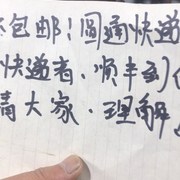 包邮！圆通快递
快递者、顺丰到付
请大家、理解